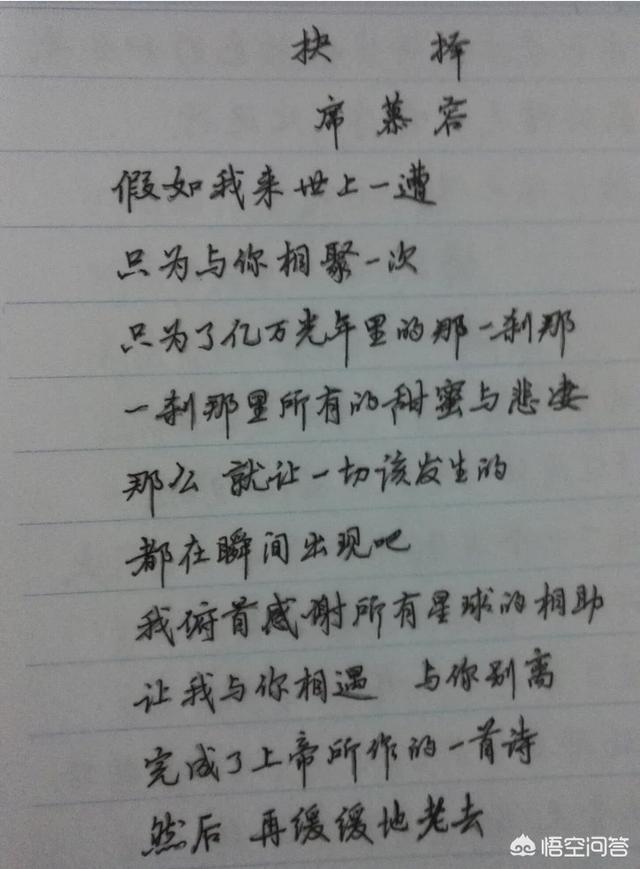 抉 择
席慕容
假如我来世上一遭
只为与你相聚一次
只为了亿万光年里的那一刹那
一刹那里所有的甜蜜与悲凄
那么 就让一切该发生的
都在瞬间出现吧
我俯首感谢所有星球的相助
让我与你相遇 与你别离
完成了上帝所作的一首诗
然后 再缓缓地老去
悟空问答